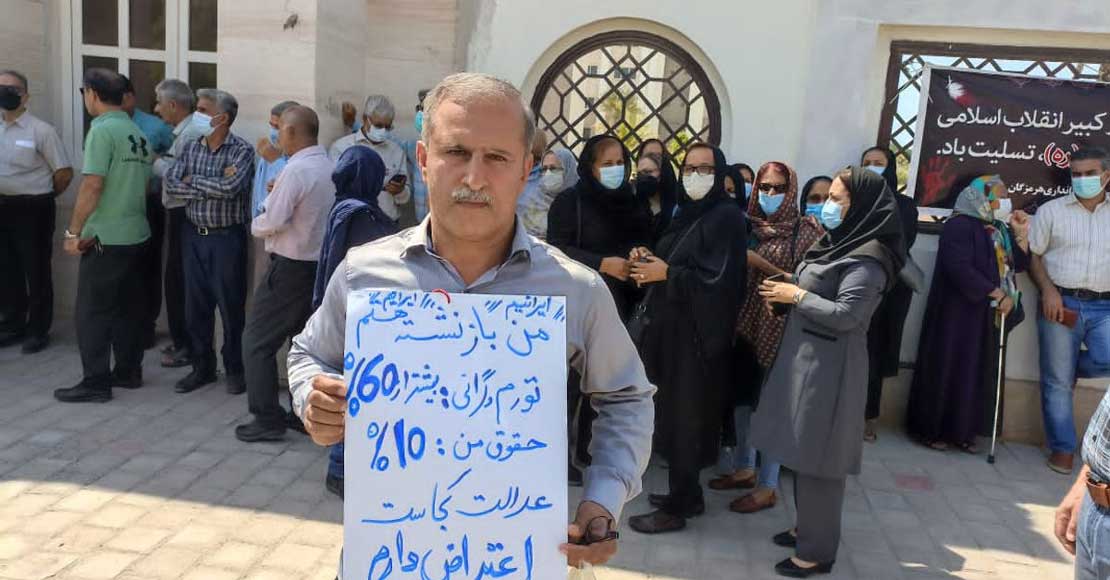 "ایرانیم" "ایرانیم"
من بازنشسته هستم
تورم وگرانی: بیشتراز 60%
حقوق من: 10%
عدالت کجاست
اعتراض دارم
کبیر انقلاب اسلامی
(ره)، تسلیت باد.
انداری هرمزگان